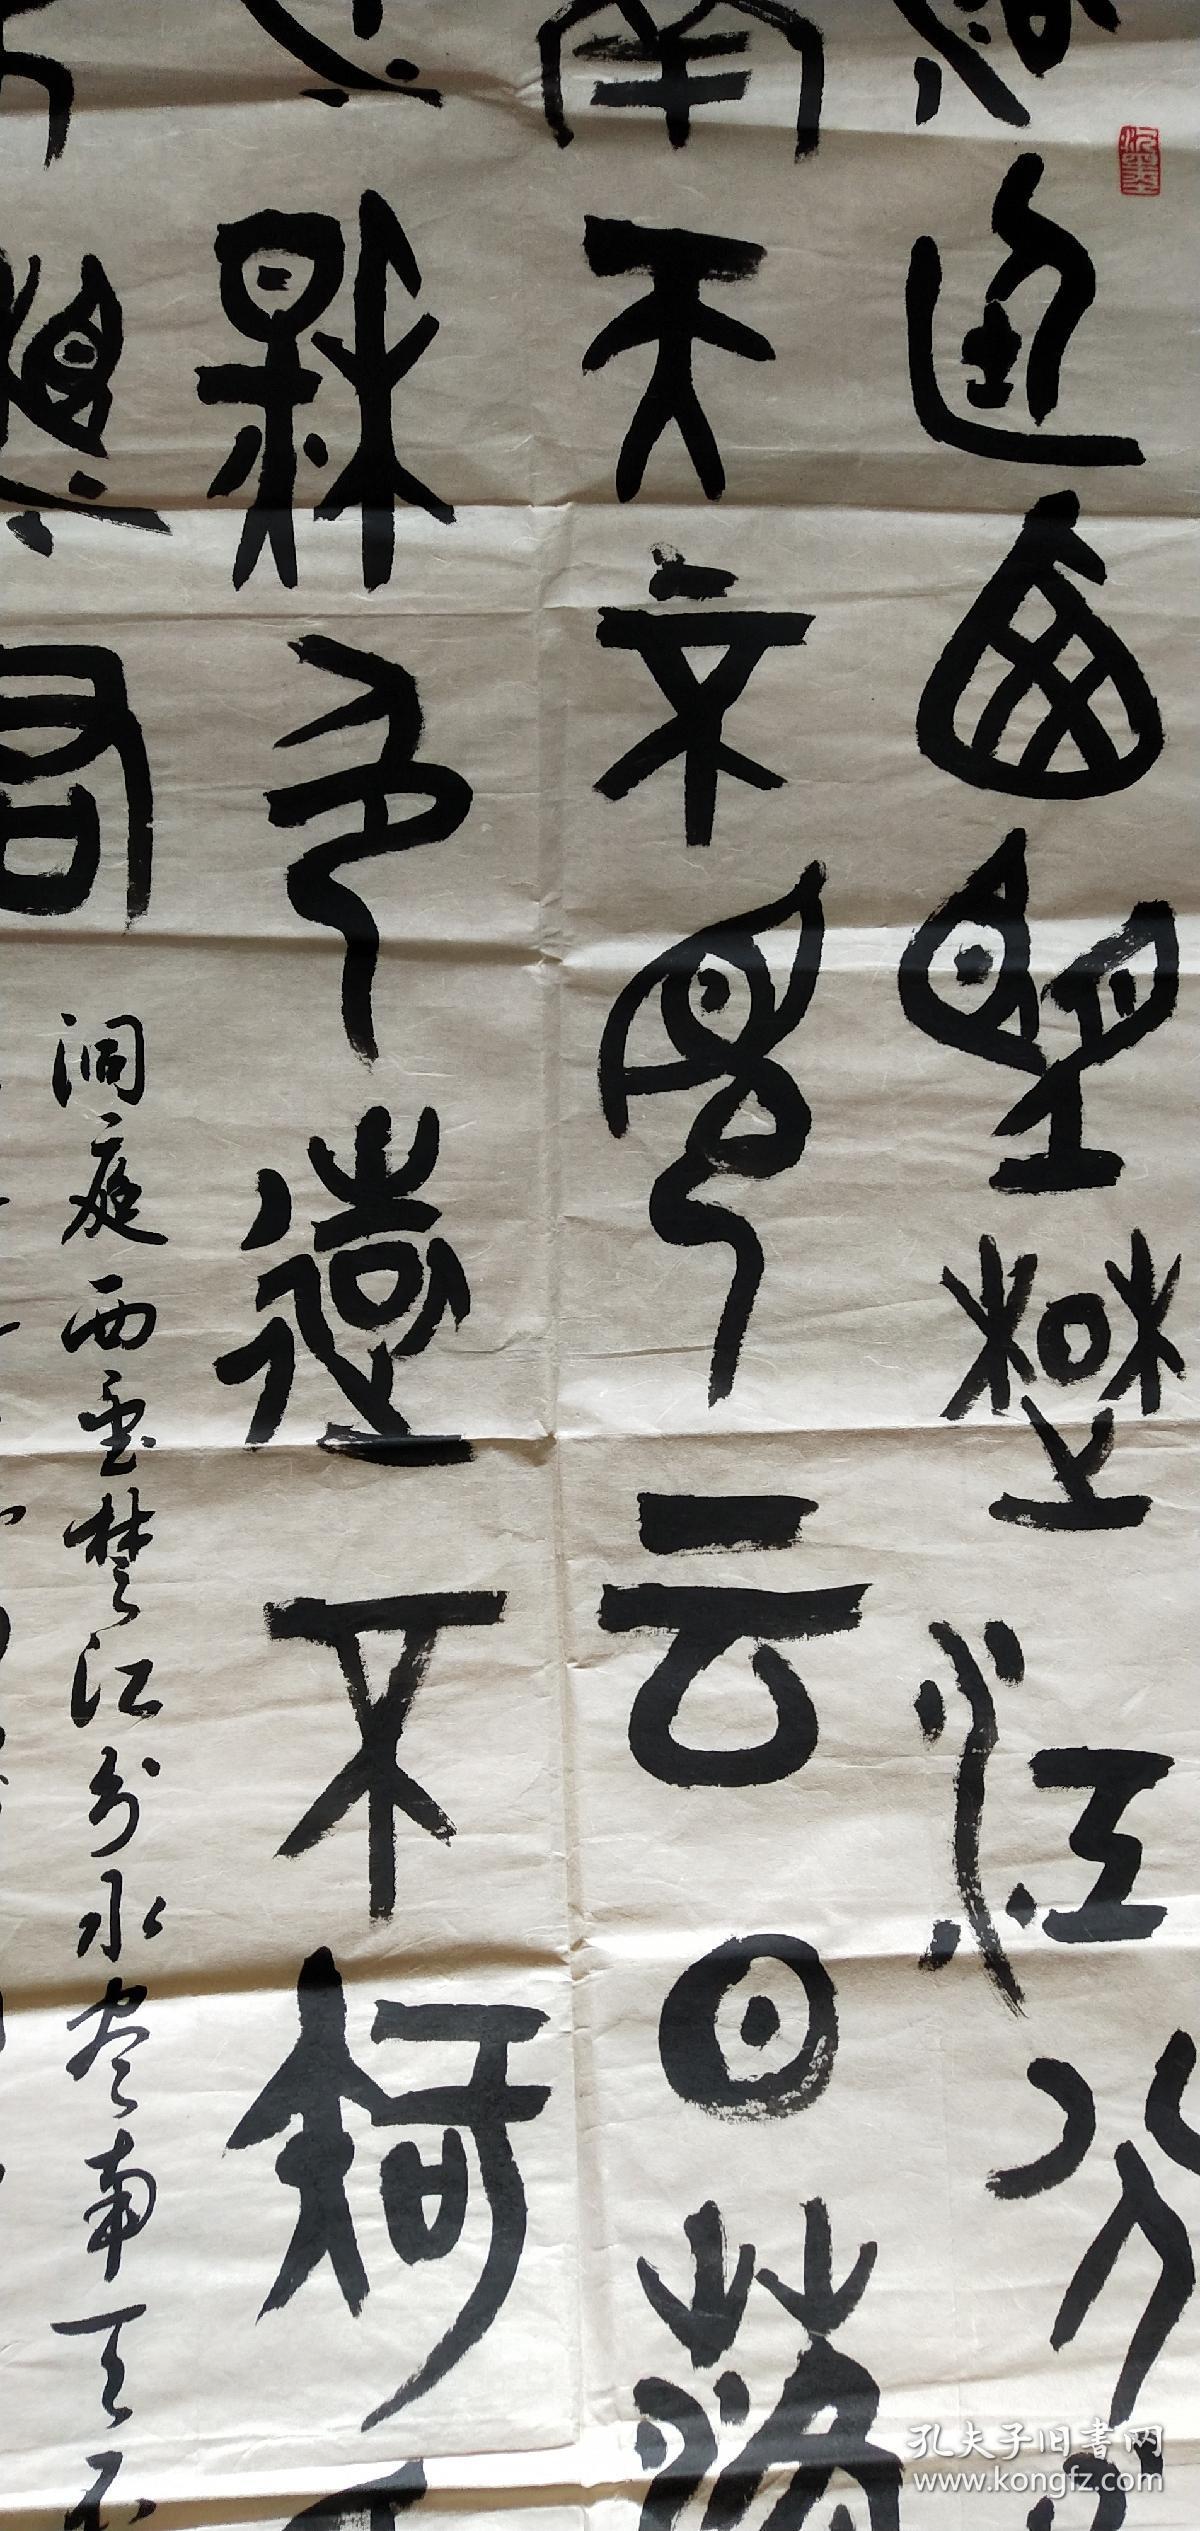 庭西望楚江分
南天不见云日落
秋色远不知
湘君
洞庭西望楚江分水尽南天不
孔夫子旧书网
www.kongfz.com